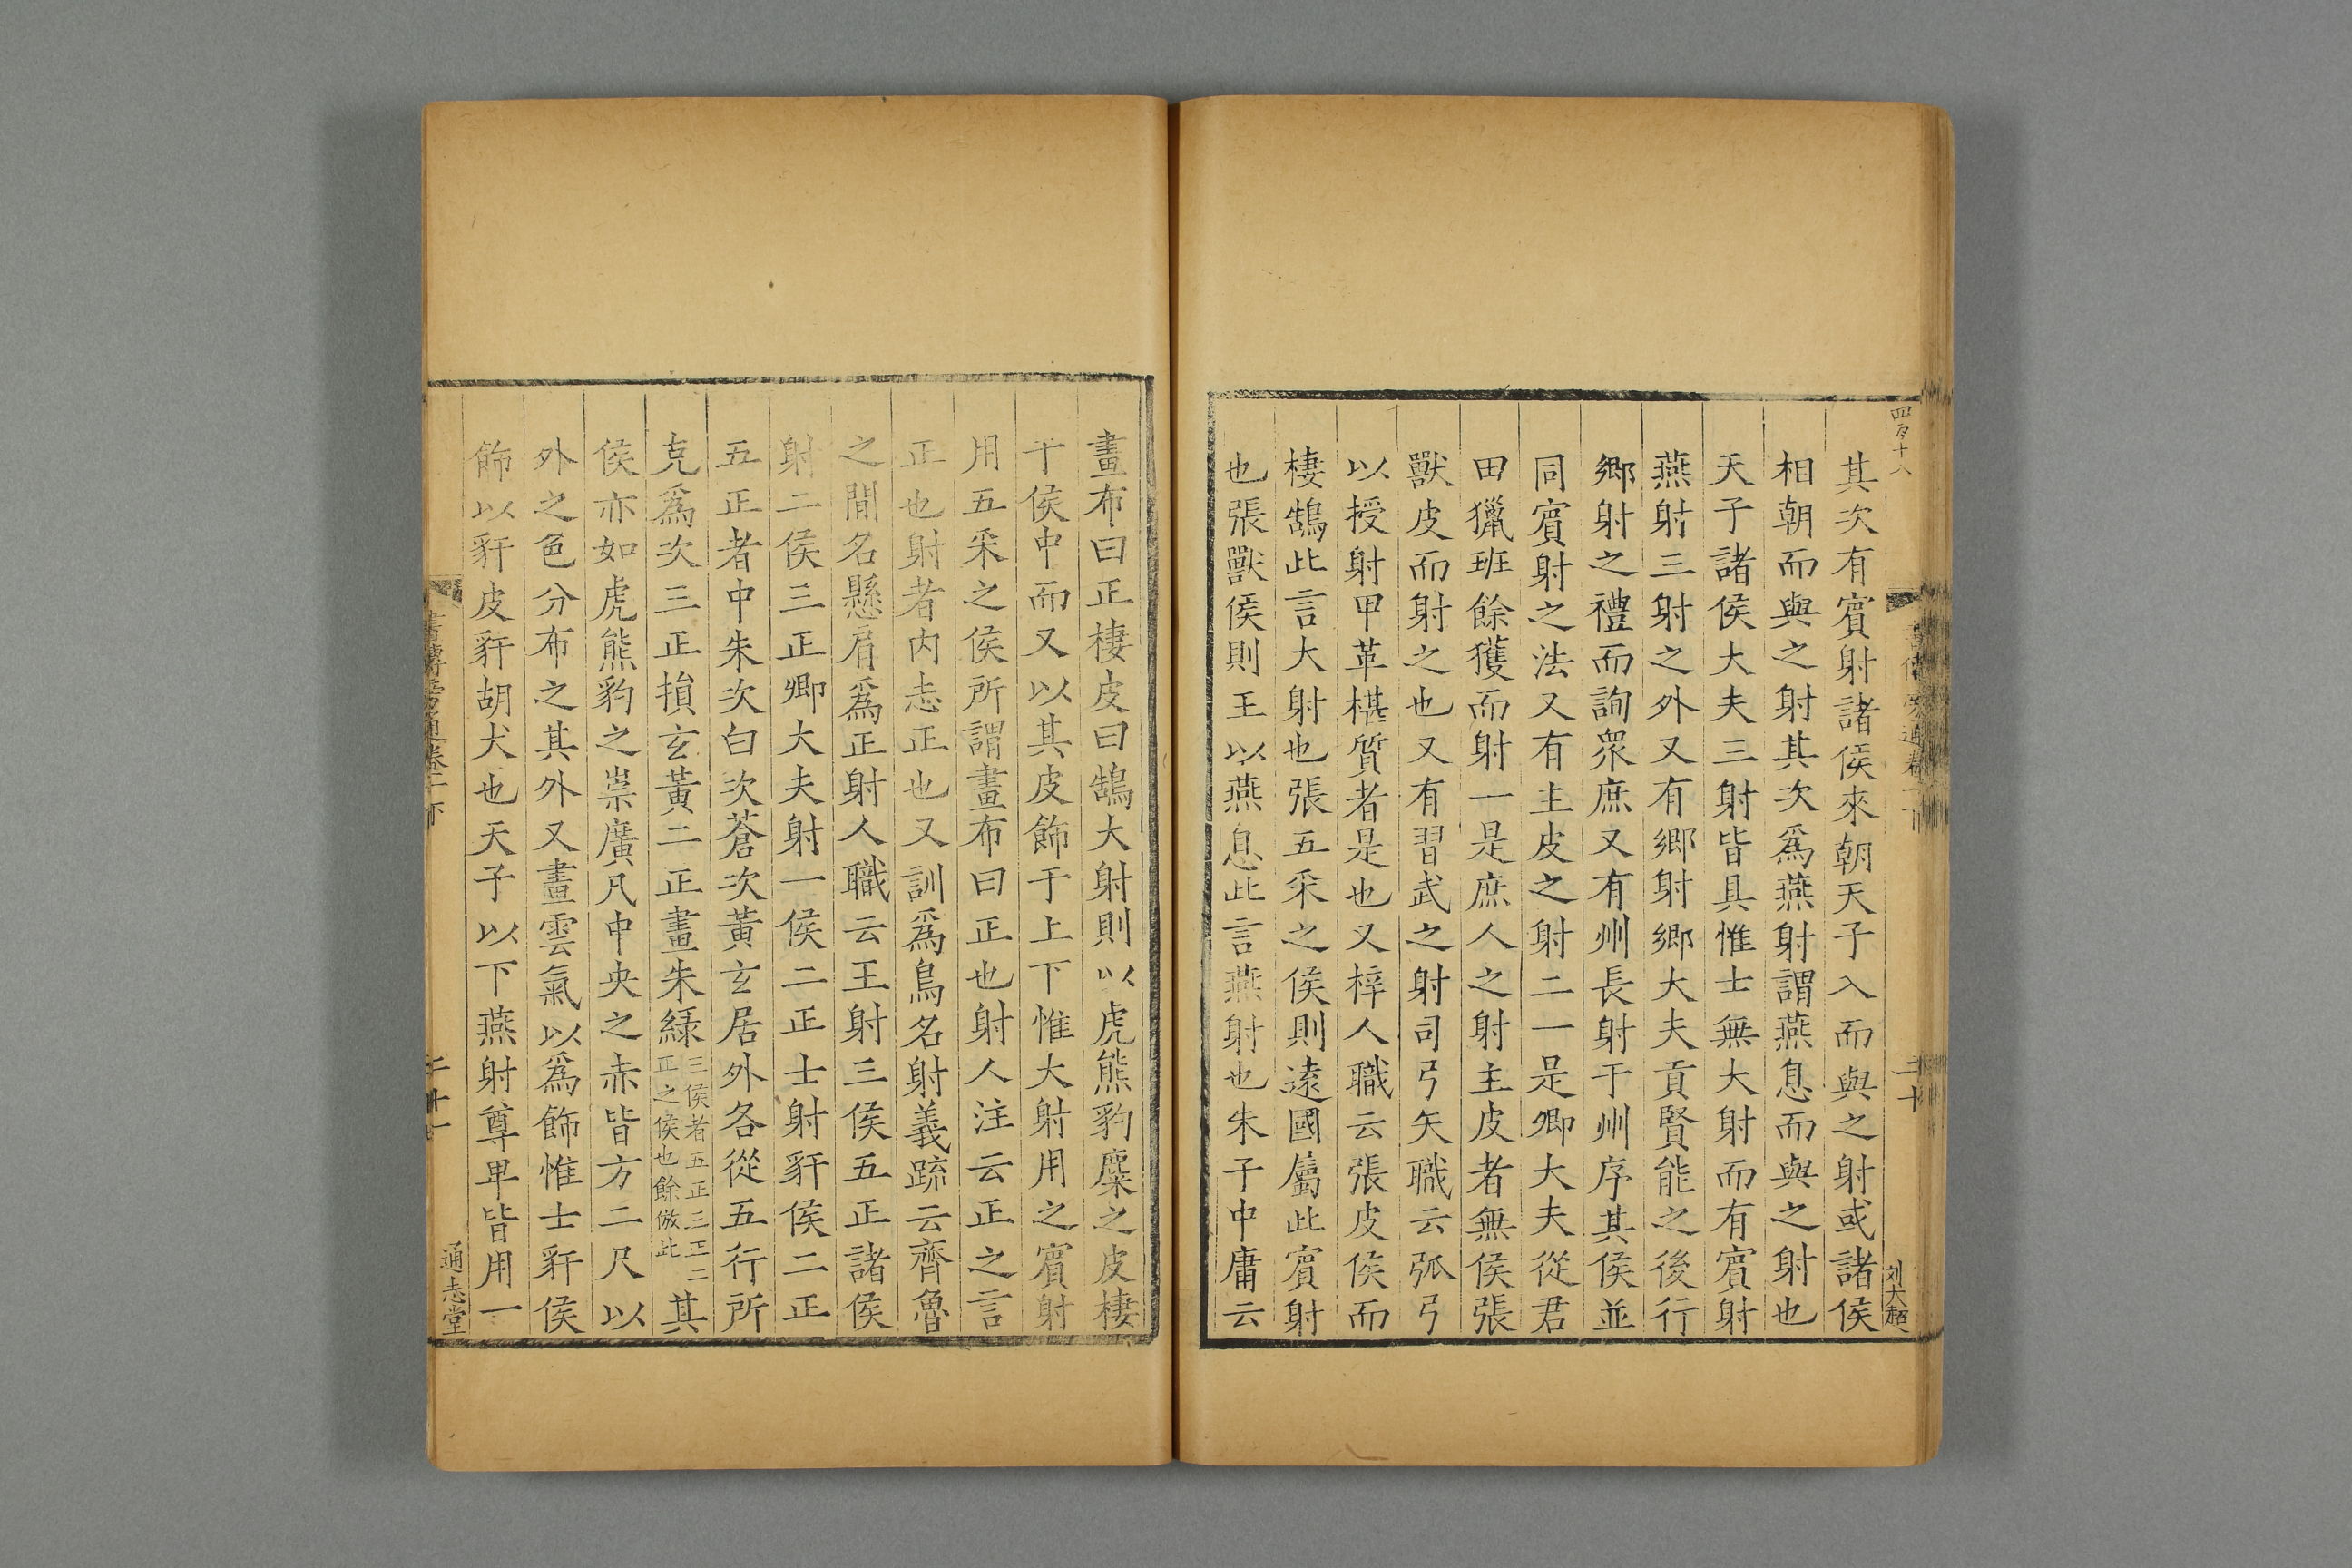 其次有賔射諸侯來朝天子入而與之射或諸侯
相朝而與之射其次爲燕射謂燕息而與之射也
天子諸侯大夫三射皆具惟士無大射而有賔射
燕射三射之外又有鄉射鄉大夫貢賢能之後行
鄉射之禮而詢衆庶又有州長射于州序其侯並
同賔射之法又有主皮之射二一是卿大夫從君
田獵班餘獲而射一是庶人之射主皮者無侯張
獸皮而射之也又有習武之射司弓矢職云弧弓
以授射甲革椹質者是也又梓人職云張皮侯而
棲鵠此言大射也張五采之侯則遠國屬此賔射
也張獸侯則王以燕息此言燕射也朱子中庸云
二十
畫布曰正棲皮曰鵠大射則以虎熊豹麋之皮棲
于侯中而又以其皮飾于上下惟大射用之賔射
用五采之侯所謂畫布曰正也射人注云正之言
正也射者内志正也又訓爲鳥名射義疏云齊魯
之間名懸肩爲正射人職云王射三侯五正諸侯
射二侯三正卿大夫射一侯二正士射豻侯二正
五正者中朱次白次蒼次黃玄居外各從五行所
克爲次三正損玄黃二正畫朱緑三侯者五正三正二正之侯也餘倣此其
侯亦如虎熊豹之崇廣凡中央之赤皆方二尺以
外之色分布之其外又畫雲氣以爲飾惟士豻侯
飾以豻皮豻胡犬也天子以下燕射尊卑皆用一
通志堂